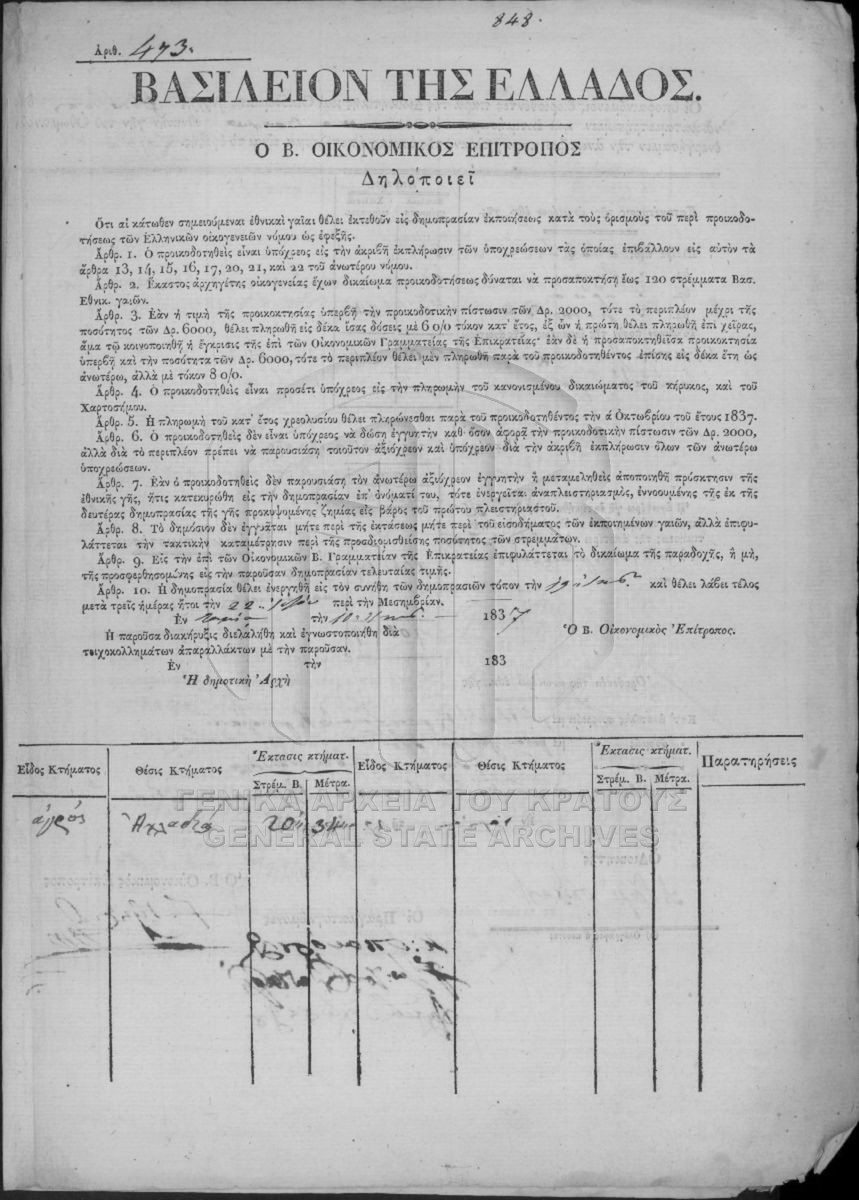 848.
Ἀριθ. 473.
ΒΑΣΙΛΕΙΟΝ ΤΗΣ ΕΛΛΑΔΟΣ.
Ο Β. ΟΙΚΟΝΟΜΙΚΟΣ ΕΠΙΤΡΟΠΟΣ
Δηλοποιεῖ
Ὅτι αἱ κάτωθεν σημειούμεναι ἐθνικαὶ γαῖαι θέλει ἐκτεθοῦν εἰς δημοπρασίαν ἐκποιήσεως κατὰ τοὺς ὁρισμοὺς τοῦ περὶ προικοδο-
τήσεως τῶν Ἑλληνικῶν οἰκογενειῶν νόμου ὡς ἐφεξῆς.
Ἄρθρ. 1. Ὁ προικοδοτηθεὶς εἶναι ὑπόχρεος εἰς τὴν ἀκριβῆ ἐκπλήρωσιν τῶν ὑποχρεώσεων τὰς ὁποίας ἐπιβάλλουν εἰς αὐτὸν τὰ
ἄρθρα 13, 14, 15, 16, 17, 20, 21, καὶ 22 τοῦ ἀνωτέρου νόμου.
Ἄρθρ. 2. Ἕκαστος ἀρχηγέτης οἰκογενείας ἔχων δικαίωμα προικοδοτήσεως δύναται νὰ προσαποκτήσῃ ἕως 120 στρέμματα Βασ.
Ἐθνικ. γαιῶν.
Ἄρθρ. 3. Ἐὰν ἡ τιμὴ τῆς προικοκτησίας ὑπερβῇ τὴν προικοδοτικὴν πίστωσιν τῶν Δρ. 2000, τότε τὸ περιπλέον μέχρι τῆς
ποσότητος τῶν Δρ. 6000, θέλει πληρωθῆ εἰς δέκα ἴσας δόσεις μὲ 6 0/0 τόκον κατ' ἔτος, ἐξ ὧν ἡ πρώτη θέλει πληρωθῆ ἐπὶ χεῖρας,
ἅμα τῷ κοινοποιηθῇ ἡ ἔγκρισις τῆς ἐπὶ τῶν Οἰκονομικῶν Γραμματείας τῆς Ἐπικρατείας· ἐὰν δὲ ἡ προσαποκτηθεῖσα προικοκτησία
ὑπερβῇ καὶ τὴν ποσότητα τῶν Δρ. 6000, τότε τὸ περιπλέον θέλει μὲν πληρωθῆ παρὰ τοῦ προικοδοτηθέντος ἐπίσης εἰς δέκα ἔτη ὡς
ἀνωτέρω, ἀλλὰ μὲ τόκον 8 0/0.
Ἄρθρ. 4. Ὁ προικοδοτηθεὶς εἶναι προσέτι ὑπόχρεος εἰς τὴν πληρωμὴν τοῦ κανονισμένου δικαιώματος τοῦ κήρυκος, καὶ τοῦ
Χαρτοσήμου.
Ἄρθρ. 5. Ἡ πληρωμὴ τοῦ κατ' ἔτος χρεολυσίου θέλει πληρώνεσθαι παρὰ τοῦ προικοδοτηθέντος τὴν ά Ὀκτωβρίου τοῦ ἔτους 1837.
Ἄρθρ. 6. Ὁ προικοδοτηθεὶς δὲν εἶναι ὑπόχρεος νὰ δώσῃ ἐγγυητὴν καθ' ὅσον ἀφορᾷ τὴν προικοδοτικὴν πίστωσιν τῶν Δρ. 2000,
ἀλλὰ διὰ τὸ περιπλέον πρέπει νὰ παρουσιάσῃ τοιοῦτον ἀξιόχρεον καὶ ὑπόχρεον διὰ τὴν ἀκριβῆ ἐκπλήρωσιν ὅλων τῶν ἀνωτέρω
ὑποχρεώσεων.
Ἄρθρ. 7. Ἐὰν ὁ προικοδοτηθεὶς δὲν παρουσιάσῃ τὸν ἀνωτέρω ἀξιόχρεον ἐγγυητὴν ἢ μεταμεληθεὶς ἀποποιηθῇ πρόσκτησιν τῆς
ἐθνικῆς γῆς, ἥτις κατεκυρώθη εἰς τὴν δημοπρασίαν ἐπ' ὀνόματί του, τότε ἐνεργεῖται ἀναπλειστηριασμὸς, ἐννοουμένης τῆς ἐκ τῆς
δευτέρας δημοπρασίας τῆς γῆς προκυψομένης ζημίας εἰς βάρος τοῦ πρώτου πλειστηριαστοῦ.
Ἄρθρ. 8. Τὸ δημόσιον δὲν ἐγγυᾶται μήτε περὶ τῆς ἐκτάσεως μήτε περὶ τοῦ εἰσοδήματος τῶν ἐκποιημένων γαιῶν, ἀλλὰ ἐπιφυ-
λάττεται τὴν τακτικὴν καταμέτρησιν περὶ τῆς προσδιορισθείσης ποσότητος τῶν στρεμμάτων.
Ἄρθρ. 9. Εἰς τὴν ἐπὶ τῶν Οἰκονομικῶν Β. Γραμματείαν τῆς Ἐπικρατείας ἐπιφυλάττεται τὸ δικαίωμα τῆς παραδοχῆς, ἢ μὴ,
τῆς προσφερθησομένης εἰς τὴν παροῦσαν δημοπρασίαν τελευταίας τιμῆς.
Ἄρθρ. 10. Ἡ δημοπρασία θέλει ἐνεργηθῆ εἰς τὸν συνήθη τῶν δημοπρασιῶν τόπον τὴν 19 καὶ θέλει λάβει τέλος
μετὰ τρεῖς ἡμέρας ἤτοι τὴν 22 περὶ τὴν Μεσημβρίαν.
Ἐν τὴν 1837
Ἡ παροῦσα διακήρυξις διελαλήθη καὶ ἐγνωστοποιήθη διὰ
τοιχοκολλημάτων ἀπαραλλάκτων μὲ τὴν παροῦσαν.
Ὁ Β. Οἰκονομικὸς Ἐπίτροπος.
Ἐν τὴν 183
Ἡ δημοτικὴ Ἀρχὴ
Εἶδος Κτήματος Θέσις Κτήματος Ἔκτασις κτήματ. Εἶδος Κτήματος Θέσις Κτήματος Ἔκτασις κτήματ. Παρατηρήσεις
Στρέμ. Β. Μέτρα. Στρέμ. Β. Μέτρα.
ἀγρός Ἀχλαδιά 20 34
ΓΕΝΙΚΑ ΑΡΧΕΙΑ ΤΟΥ ΚΡΑΤΟΥΣ
GENERAL STATE ARCHIVES